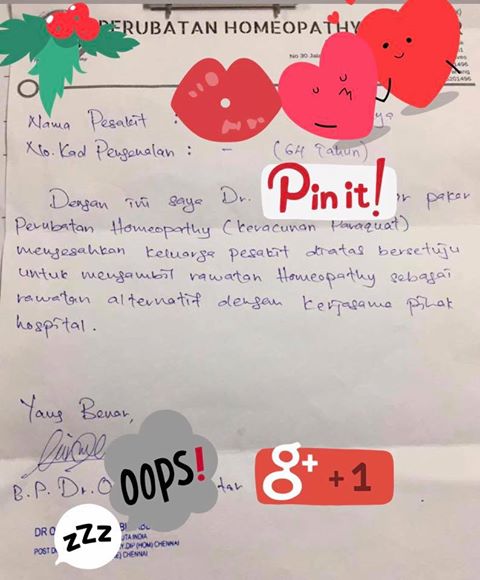 PERUBATAN HOMEOPATHY
No 30 Jala
Nama Pesakit :
No. Kad Pengenalan : - (64 Tahun)
Pin it!
Dengan ini saya Dr. pakar
Perubatan Homeopathy (keracunan Paraquat)
mengesahkan keluarga pesakit diatas bersetuju
untuk mengambil rawatan Homeopathy sebagai
rawatan alternatif dengan kerjasama pihak
hospital.
Yang Benar,
OOPS!
g+ +1
B.P. Dr. O
zzZ
DR O
UTA INDIA
POST D Y.DIP (HOM) CHENNAI
E) CHENNAI